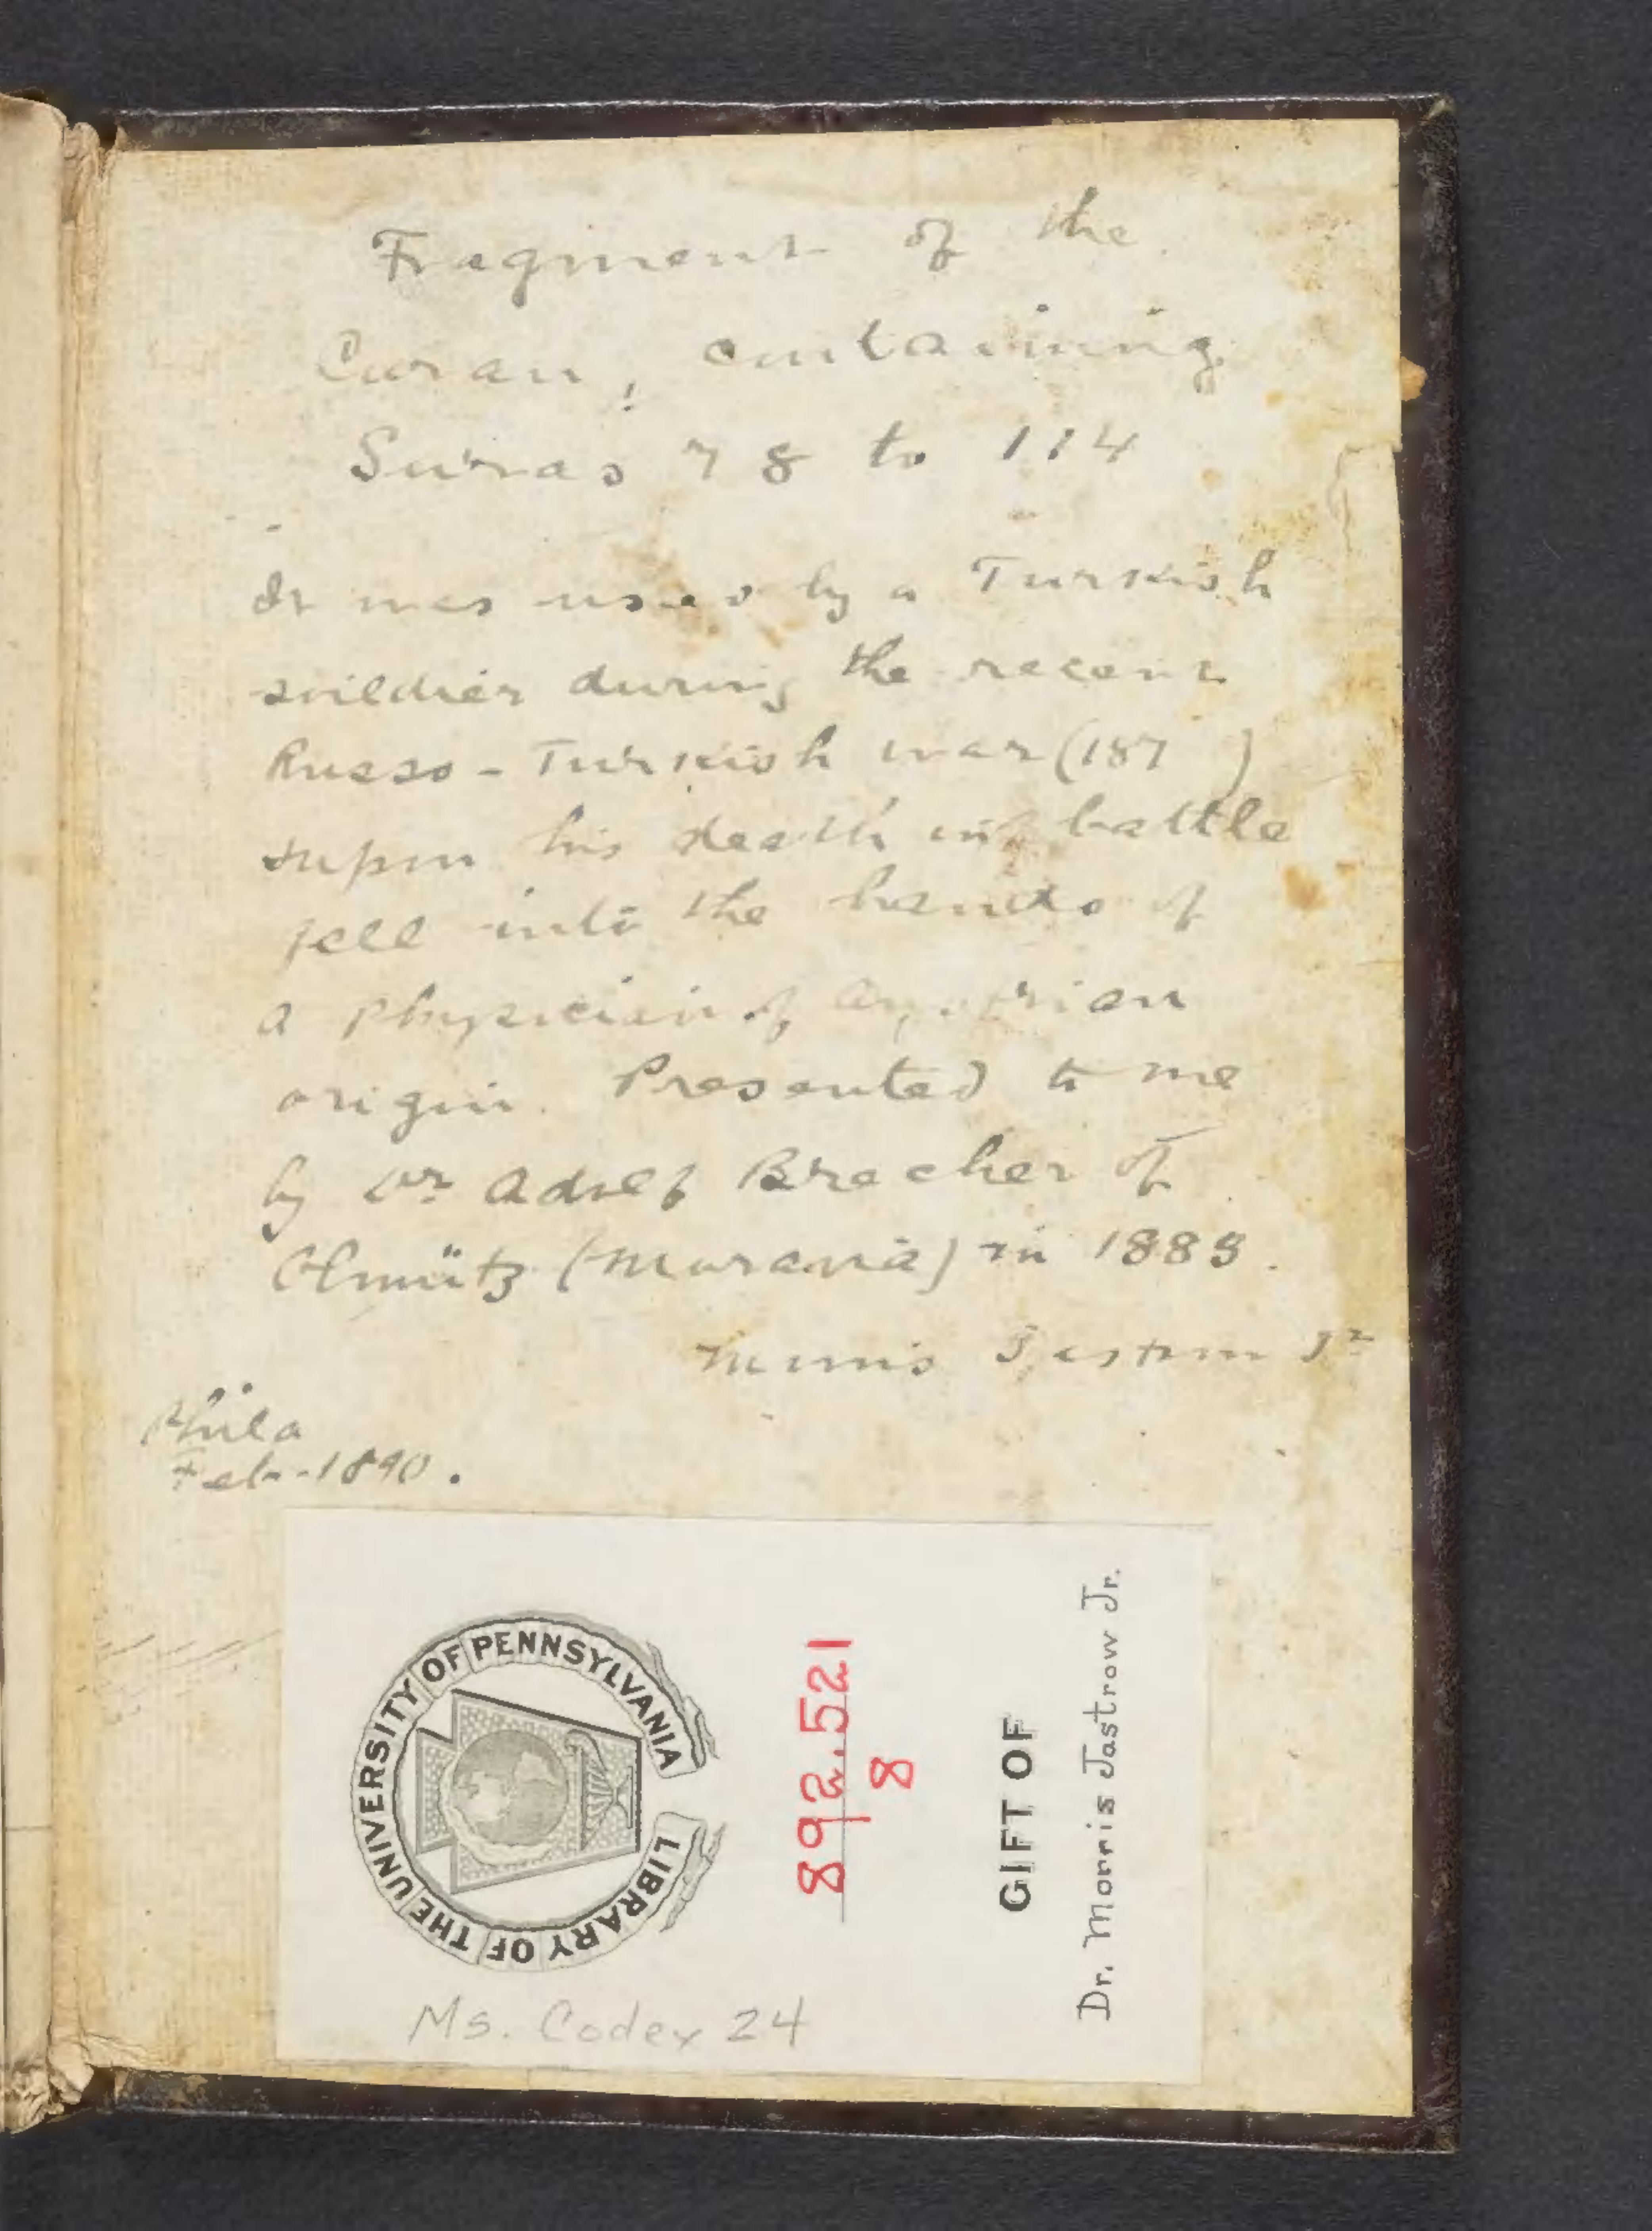 Fragment of the
Coran, containing
Suras 78 to 114
It was used by a Turkish
soildier during the recent
Russo-Turkish war (187 )
& upon his death in battle
fell into the hands of
a physician of Austrian
origin. Presented to me
by Dr Adolf Brecher of
Olmütz (Moravia) in 1885.
Morris Jastrow Jr
Phila
Feb-1890.
LIBRARY OF THE UNIVERSITY OF PENNSYLVANIA
892.521
8
GIFT OF
Dr. Morris Jastrow Jr.
Ms. Codex 24